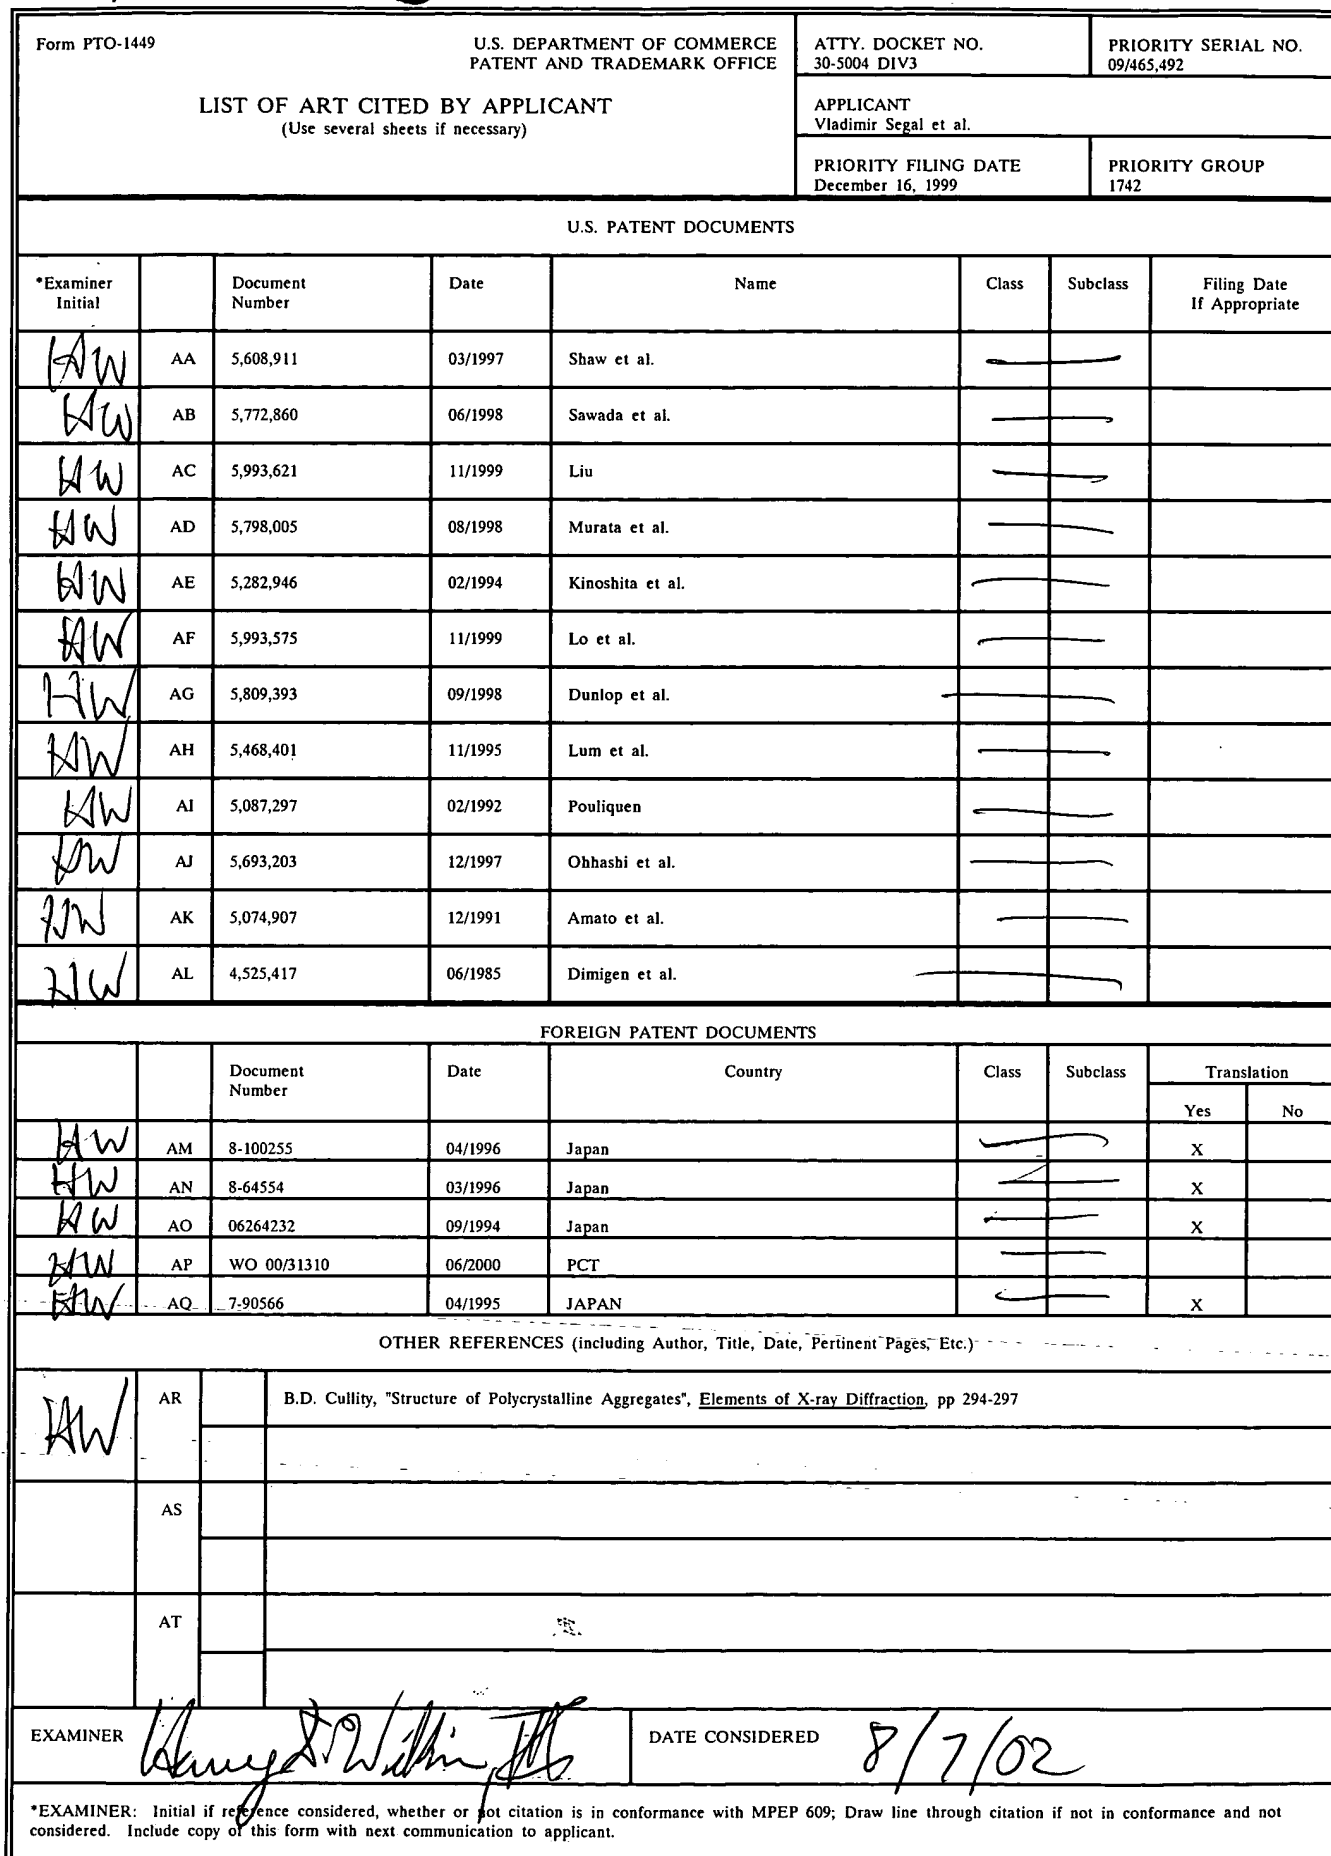 Form PTO-1449
U.S. DEPARTMENT OF COMMERCE
PATENT AND TRADEMARK OFFICE
LIST OF ART CITED BY APPLICANT
(Use several sheets if necessary)
ATTY. DOCKET NO.
30-5004 DIV3
PRIORITY SERIAL NO.
09/465,492
APPLICANT
Vladimir Segal et al.
PRIORITY FILING DATE
December 16, 1999
PRIORITY GROUP
1742
U.S. PATENT DOCUMENTS
*Examiner Initial Document Number Date Name Class Subclass Filing Date If Appropriate
HW AA 5,608,911 03/1997 Shaw et al.
HW AB 5,772,860 06/1998 Sawada et al.
HW AC 5,993,621 11/1999 Liu
HW AD 5,798,005 08/1998 Murata et al.
HW AE 5,282,946 02/1994 Kinoshita et al.
HW AF 5,993,575 11/1999 Lo et al.
HW AG 5,809,393 09/1998 Dunlop et al.
HW AH 5,468,401 11/1995 Lum et al.
HW AI 5,087,297 02/1992 Pouliquen
HW AJ 5,693,203 12/1997 Ohhashi et al.
HW AK 5,074,907 12/1991 Amato et al.
HW AL 4,525,417 06/1985 Dimigen et al.
FOREIGN PATENT DOCUMENTS
Document Number Date Country Class Subclass Translation
Yes No
HW AM 8-100255 04/1996 Japan X
HW AN 8-64554 03/1996 Japan X
HW AO 06264232 09/1994 Japan X
HW AP WO 00/31310 06/2000 PCT
HW AQ 7-90566 04/1995 JAPAN X
OTHER REFERENCES (including Author, Title, Date, Pertinent Pages, Etc.)
HW AR B.D. Cullity, "Structure of Polycrystalline Aggregates", Elements of X-ray Diffraction, pp 294-297
AS
AT
EXAMINER
DATE CONSIDERED 8/7/02
*EXAMINER: Initial if reference considered, whether or not citation is in conformance with MPEP 609; Draw line through citation if not in conformance and not
considered. Include copy of this form with next communication to applicant.